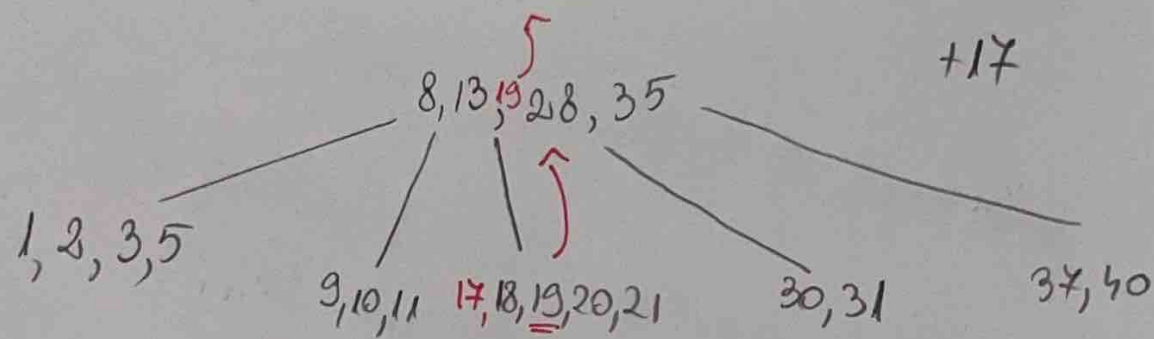 +17
8, 13, 19 28, 35
1, 2, 3, 5
9, 10, 11
17, 18, 19, 20, 21
30, 31
37, 40